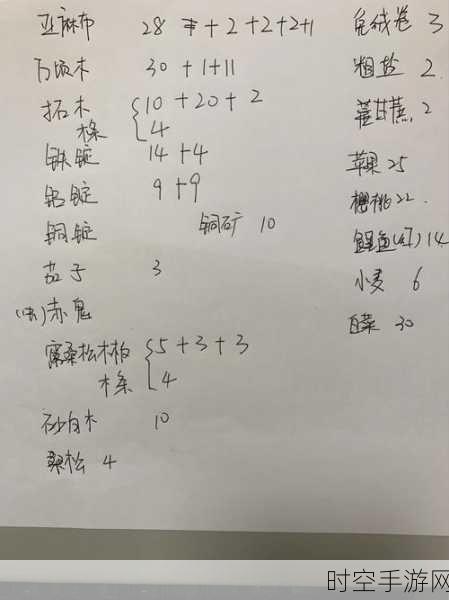 亚麻布 28 +2+2+2+1
万顷木 30+1+11
柘木 10+20+2
条 4
铁锭 14+4
铝锭 9+9
铜锭 铜矿 10
茄子 3
赤鬼
桑松木板 5+3+3
木条 4
砂白木 10
桑松 4
兔绒卷 3
粗盐 2
甘蔗 2
苹果 25
樱桃 22
鲤鱼(红) 14
小麦 6
白菜 30
时空手游网